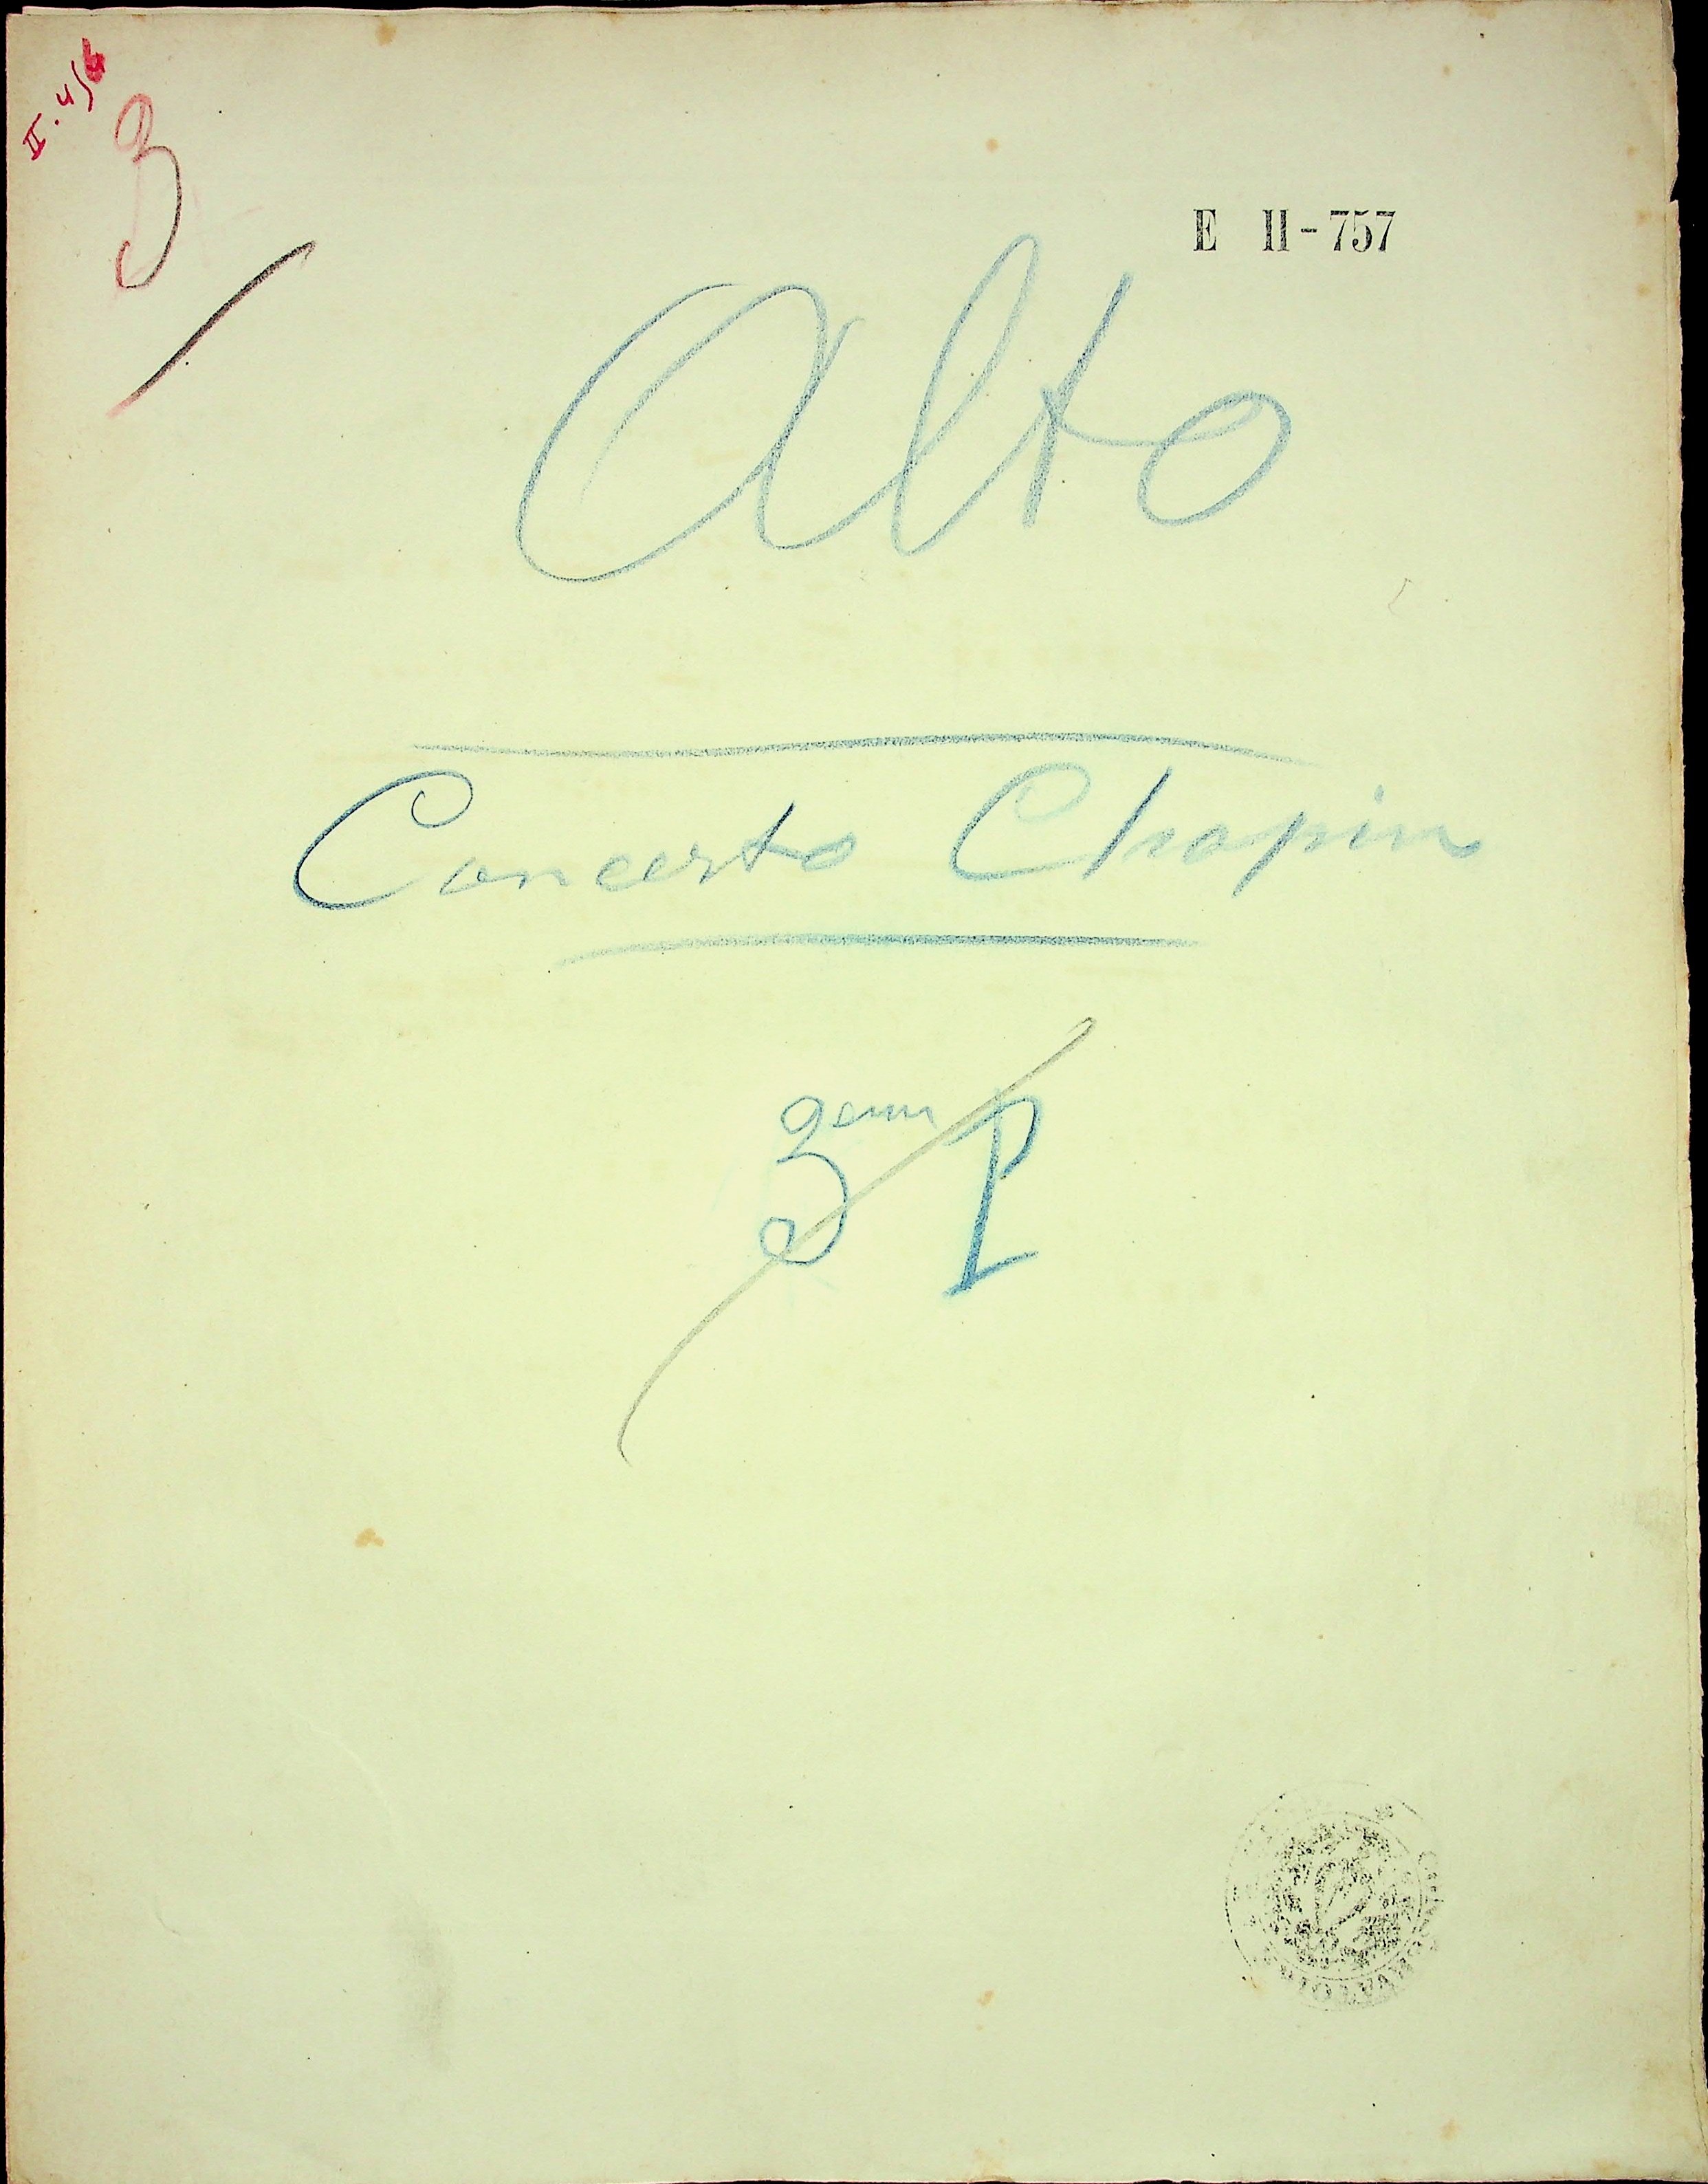 3
E II-757
Alto
Concerto Chopin
3eme P